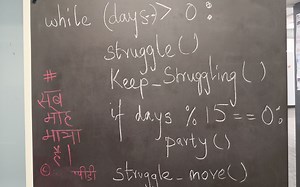 while (days) > 0:
struggle()
Keep_Struggling()
if days % 15 == 0:
party()
struggle_move()
#
सब
मोह
माया
है।
©